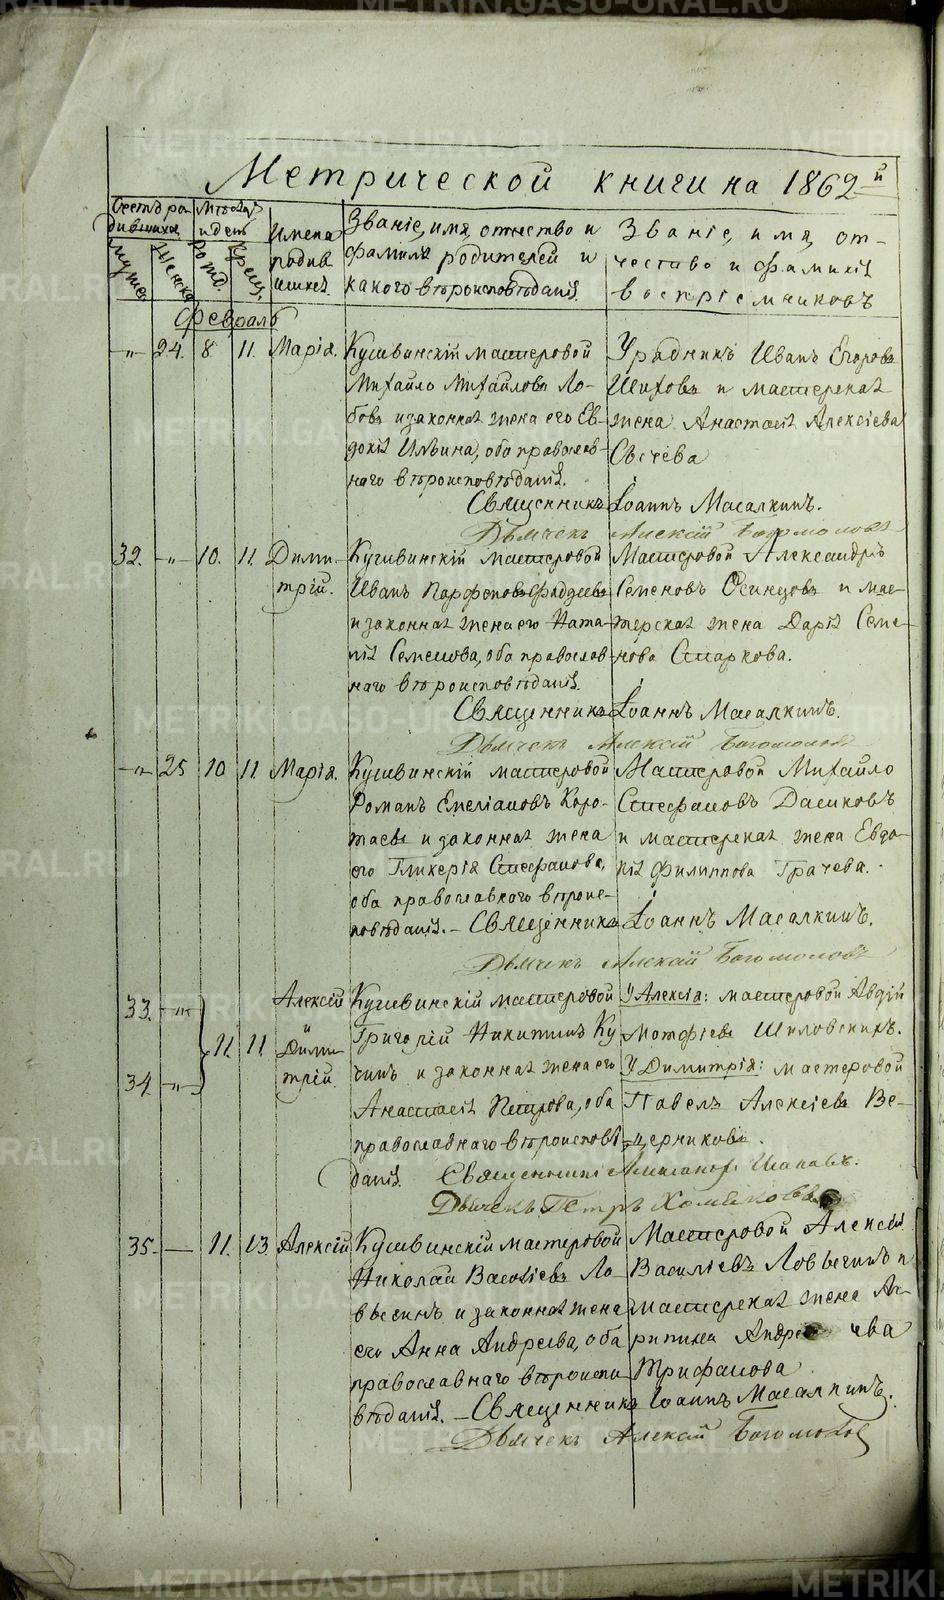 METRIKI.GASO-URAL.RU
Метрической книги на 1862й
Счетъ родившихся
Мѣсяцъ и день
Имена родившихся.
Званіе, имя, отчество и фамилія родителей и какого вѣроисповѣданія.
Званіе, имя, отчество и фамилія воспріемниковъ
мужск.
женска
рожд.
крещ.
Февраль
–„– 24. 8 11. Марія.
Кушвинскій мастеровой
Михайло Михайловъ Ло-
бовъ и законная жена его Ев-
докія Ильина, оба православ-
наго вѣроисповѣданія.
Урядникъ Иванъ Егоровъ
Шиховъ и мастерская
жена Анастасія Алексіева
Сысчева
Священникъ Іоаннъ Масалкинъ.
Дьячекъ Алексій Богомоловъ
32. –„– 10. 11. Дими-
трій.
Кушвинскій мастеровой
Иванъ Парфеновъ Фаддеевъ
и законная жена его Ната-
лія Семенова, оба православ-
наго вѣроисповѣданія.
Мастеровой Александръ
Семеновъ Осинцовъ и мас-
терская жена Дарія Семе-
нова Старкова.
Священникъ Іоаннъ Масалкинъ.
Дьячекъ Алексій Богомоловъ
–„– 25 10 11 Марія.
Кушвинскій мастеровой
Романъ Емеліановъ Коро-
таевъ и законная жена
его Гликерія Стефанова,
оба православнаго вѣроис-
повѣданія. – Священникъ Іоаннъ Масалкинъ.
Мастеровой Михайло
Стефановъ Дасиковъ
и мастерская жена Евдо-
кія Филиппова Грачева.
Дьячекъ Алексій Богомоловъ
33. –„–
34. –„–
11. 11
Алексій
и
Дими-
трій.
Кушвинскій мастеровой
Григорій Никитинъ Ку
чинъ и законная жена его
Анастасія Петрова, оба
православнаго вѣроисповѣ-
данія.
У Алексія: мастеровой Авдій
Мотфіевъ Шиловскихъ.
У Димитрія: мастеровой
Павелъ Алексіевъ Ве-
черниковъ.
Священникъ Александръ
Дьячекъ Петръ Хомяковъ
35. – 11. 13 Алексій
Кушвинскій мастеровой
Николай Василіевъ Ло-
вычинъ и законная жена
его Анна Андреева, оба
православнаго вѣроиспо-
вѣданія. – Священникъ Іоаннъ Масалкинъ.
Мастеровой Алексій
Василіевъ Ловычинъ и
мастерская жена Аг-
рипина Андре ева
Трифанова
Дьячекъ Алексій Богомолов